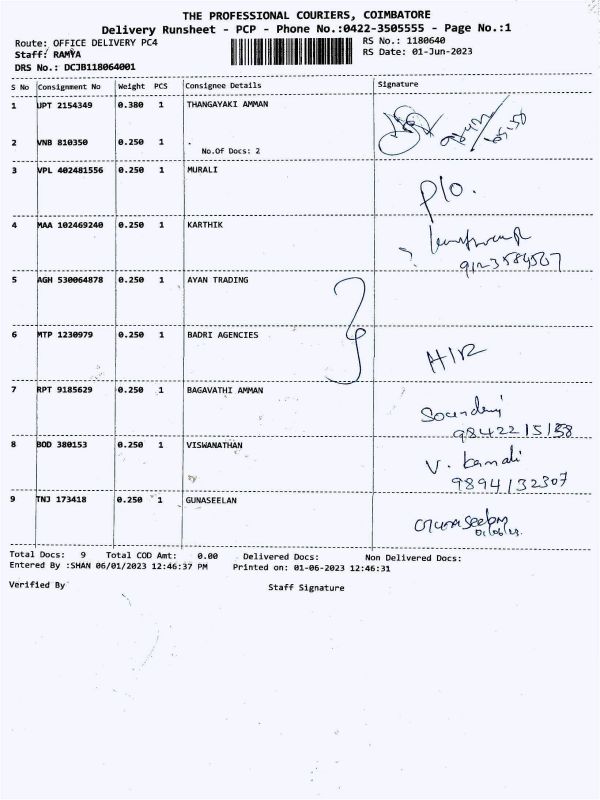 THE PROFESSIONAL COURIERS, COIMBATORE
Delivery Runsheet - PCP - Phone No.:0422-3505555 - Page No.:1
Route: OFFICE DELIVERY PC4 RS No.: 1180640
Staff: RAMYA RS Date: 01-Jun-2023
DRS No.: DCJB118064001
S No Consignment No Weight PCS Consignee Details Signature
1 UPT 2154349 0.380 1 THANGAYAKI AMMAN
2 VNB 810350 0.250 1 .
No.Of Docs: 2
3 VPL 402481556 0.250 1 MURALI
P/O.
4 MAA 102469240 0.250 1 KARTHIK
9123584567
5 AGH 530064878 0.250 1 AYAN TRADING
6 MTP 1230979 0.250 1 BADRI AGENCIES
H/R
7 RPT 9185629 0.250 1 BAGAVATHI AMMAN
9842215158
8 BOD 380153 0.250 1 VISWANATHAN
V. Kamali
9894132307
9 TNJ 173418 0.250 1 GUNASEELAN
Gunaseelan
01/06/23.
Total Docs: 9 Total COD Amt: 0.00 Delivered Docs: Non Delivered Docs:
Entered By :SHAN 06/01/2023 12:46:37 PM Printed on: 01-06-2023 12:46:31
Verified By Staff Signature